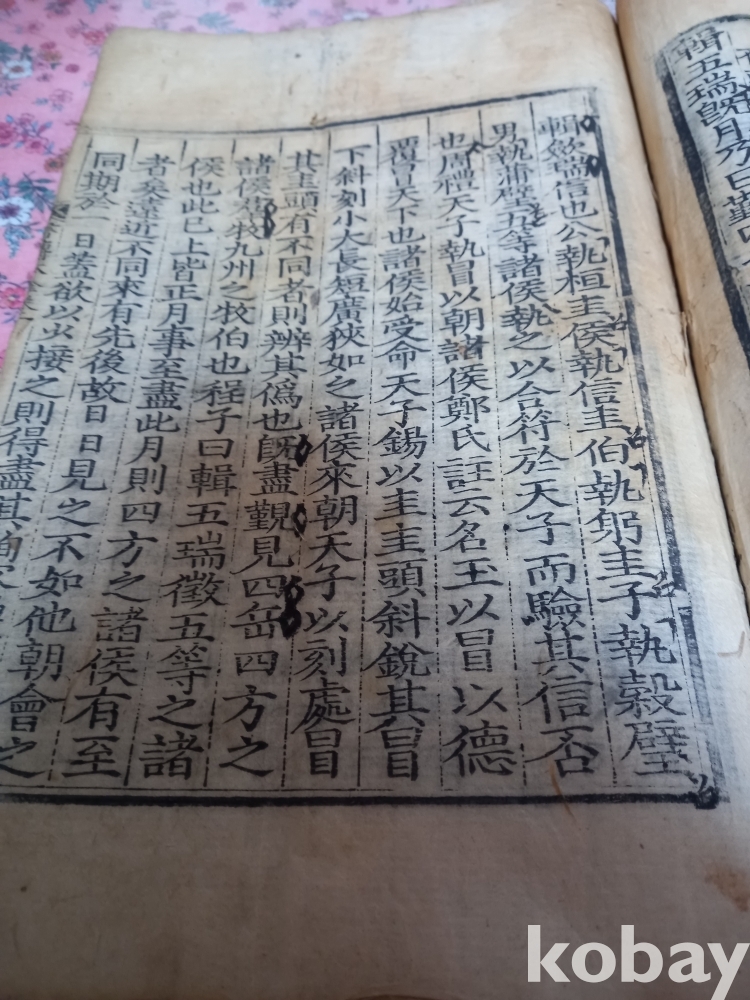 輯斂瑞信也公執桓圭侯執信圭伯執躬圭子執榖璧
男執蒲璧五等諸侯執之以合符於天子而驗其信否
也周禮天子執冒以朝諸侯鄭氏註云名玉以冒以德
覆冒天下也諸侯始受命天子錫以圭圭頭斜銳其冒
下斜刻小大長短廣狹如之諸侯來朝天子以刻處冒
其圭頭有不同者則辨其僞也旣盡覲見四岳四方之
諸侯羣牧九州之牧伯也程子曰輯五瑞徵五等之諸
侯也此已上皆正月事至盡此月則四方之諸侯有至
者矣遠近不同來有先後故日日見之不如他朝會之
同期於一日蓋欲以少接之則得盡其
輯五瑞旣月乃日覲四
kobay